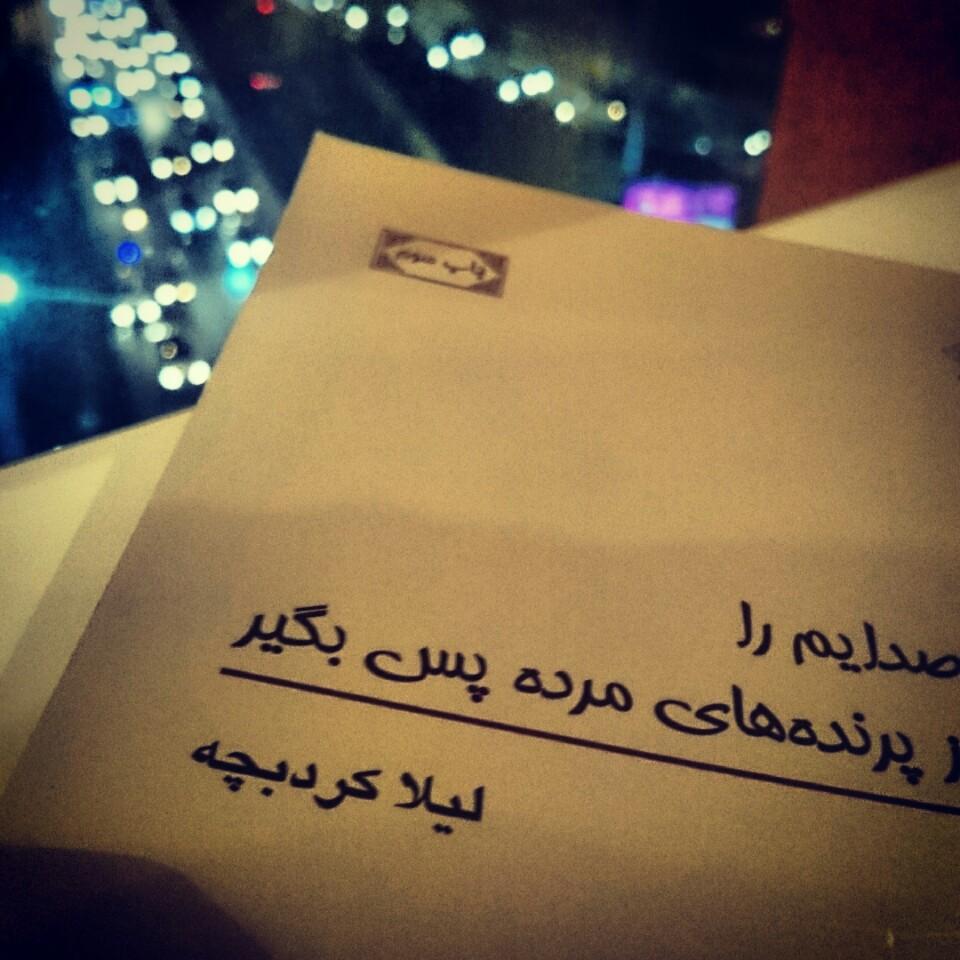 چاپ سوم
صدایم را
از پرنده‌های مرده پس بگیر
لیلا کردبچه